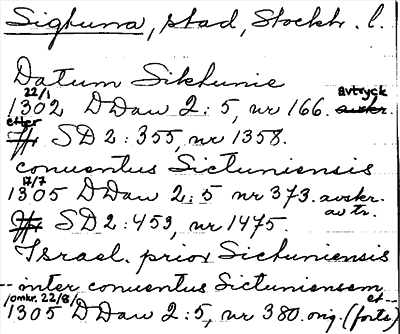 Sigtuna, stad, Stockh. l.
Datum Siktunie
22/1 avtryck
1302 DDan 2:5, nr 166.
efter SD 2:355, nr 1358.
conventus Sictuniensis
17/7
1305 DDan 2:5 nr 373. avskr. av tr.
SD 2:453, nr 1475.
Israel. prior Sictuniensis
-- inter conventus Sictuniensem et --
/omkr. 22/8/
1305 DDan 2:5, nr 380. orig. (forts)